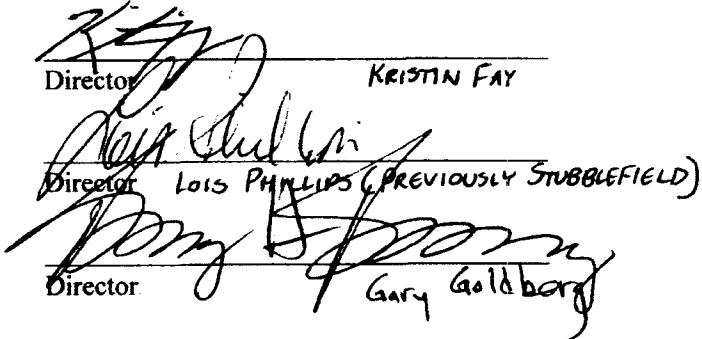 Director KRISTIN FAY
Lois Phillips
Director LOIS PHILLIPS (PREVIOUSLY STUBBLEFIELD)
Director Gary Goldberg